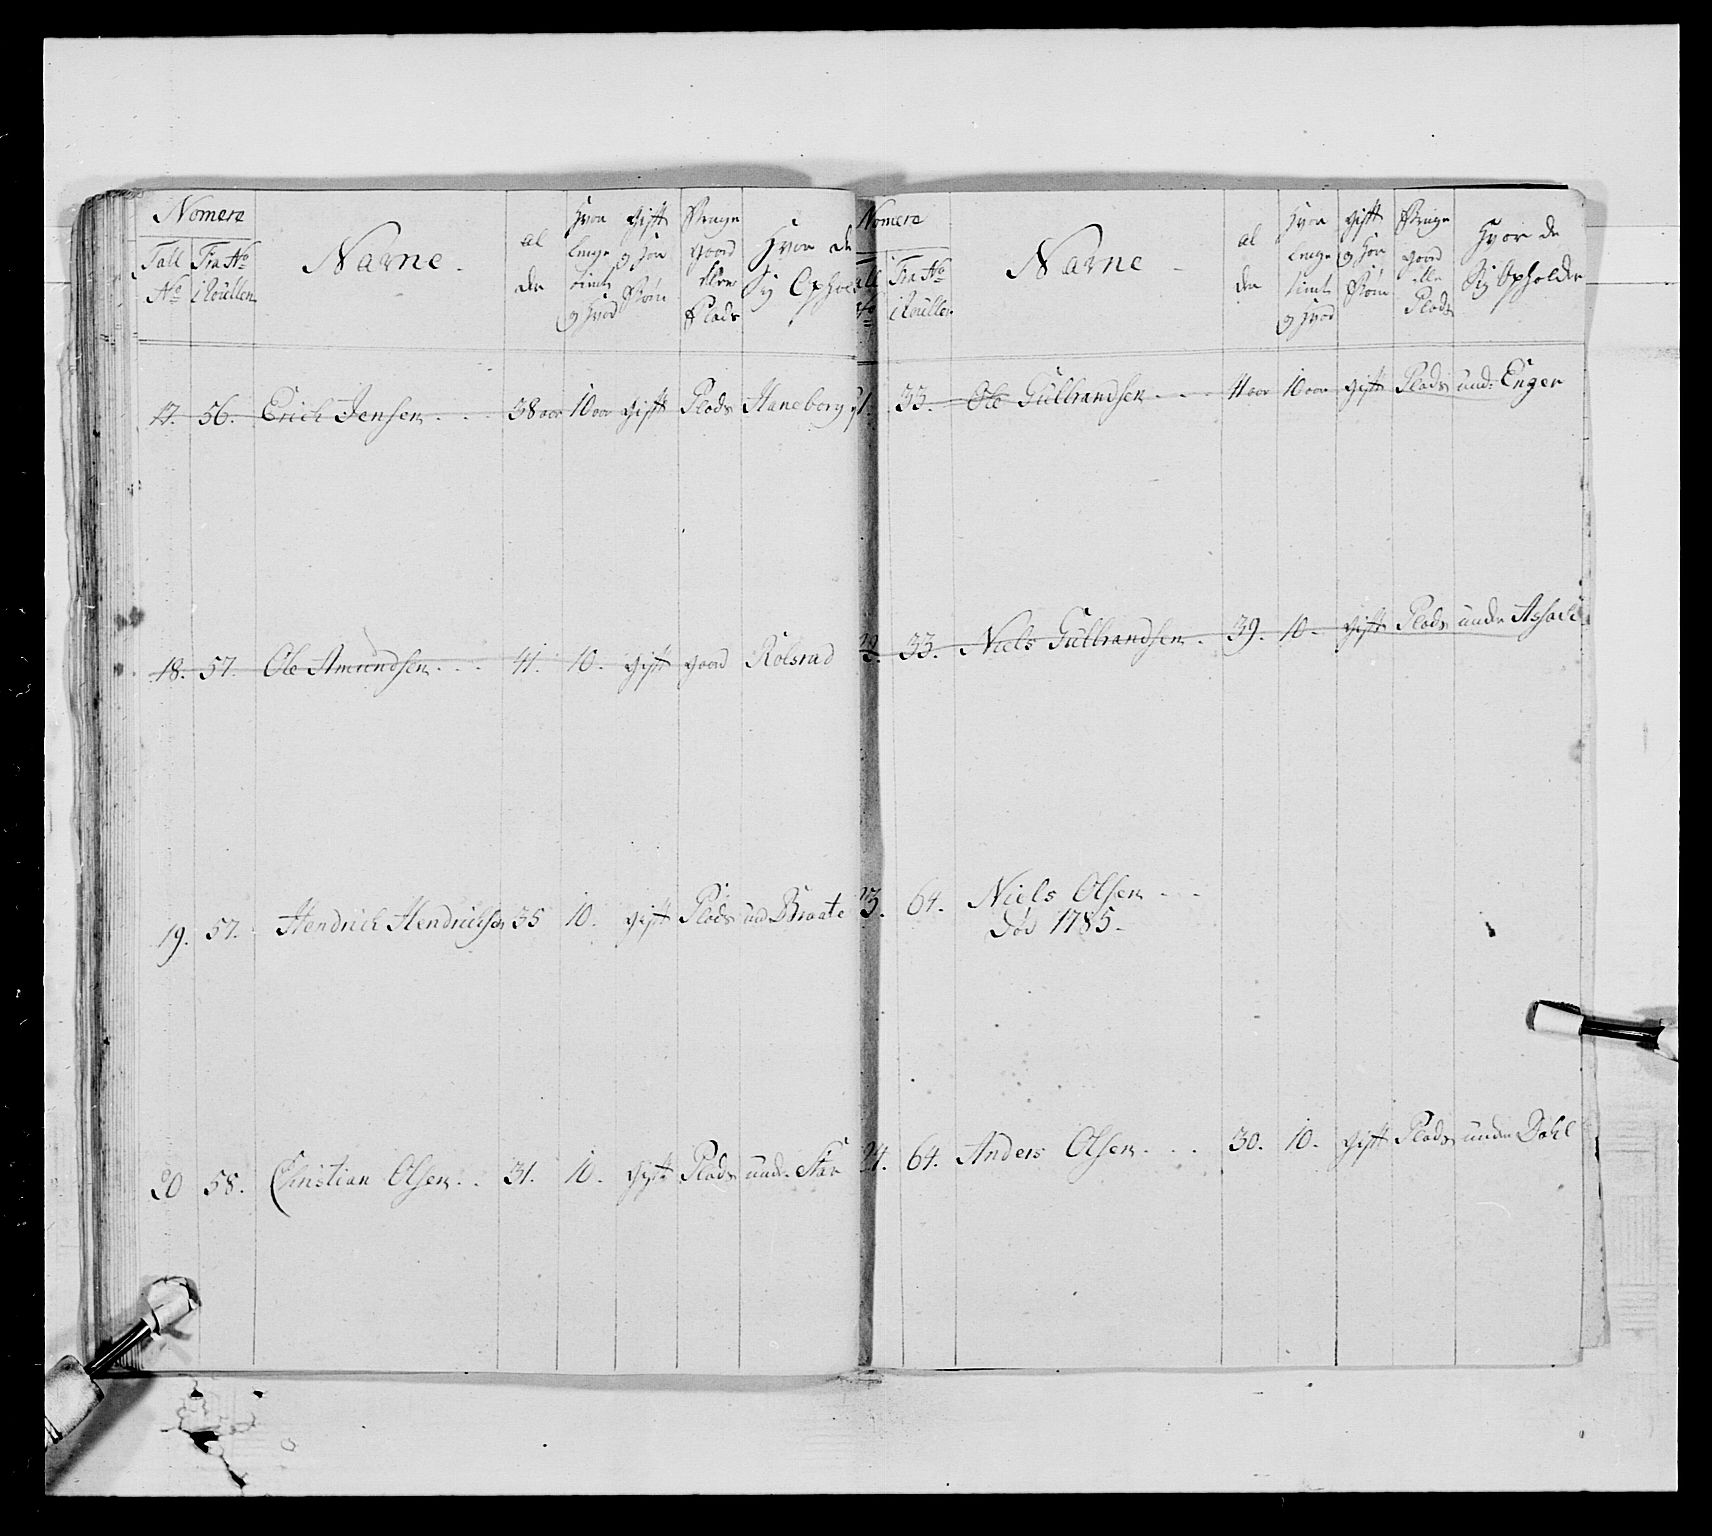 Nomere
Tall Fra No
No i Roullen
Navne
al
der
Hvor
lenge
tient
og hvad
gift
og Hor
Børn
Bruge
gaard
eller
Plads
Hvor de
Sig Ophol
17. 56. Erich Jensen 38 aar 10 aar gift Plads Haneborg
18. 57. Ole Amundsen 41. 10. gift gaard Rolsrud
19. 57. Hendrich Hendrichsen 35 10. gift Plads und Braate
20 58. Christian Olsen 31. 10. gift Plads und: Star
Nomere
Fra No
i Roullen
Navne
al
der
Hvor
lenge
tient
og hvad
gift
og Hor
Børn
Bruge
gaard
elle
Plads
Hvor de
Sig Opholder
21. 33. Ole Gulbrandsen 41 aar 10 aar gift Plads und: Enger
22. 33. Niels Gulbrandsen 39. 10. gift Plads under
23. 64. Niels Olsen
Død 1785
24. 64. Anders Olsen 30. 10. gift Plads under Dahl